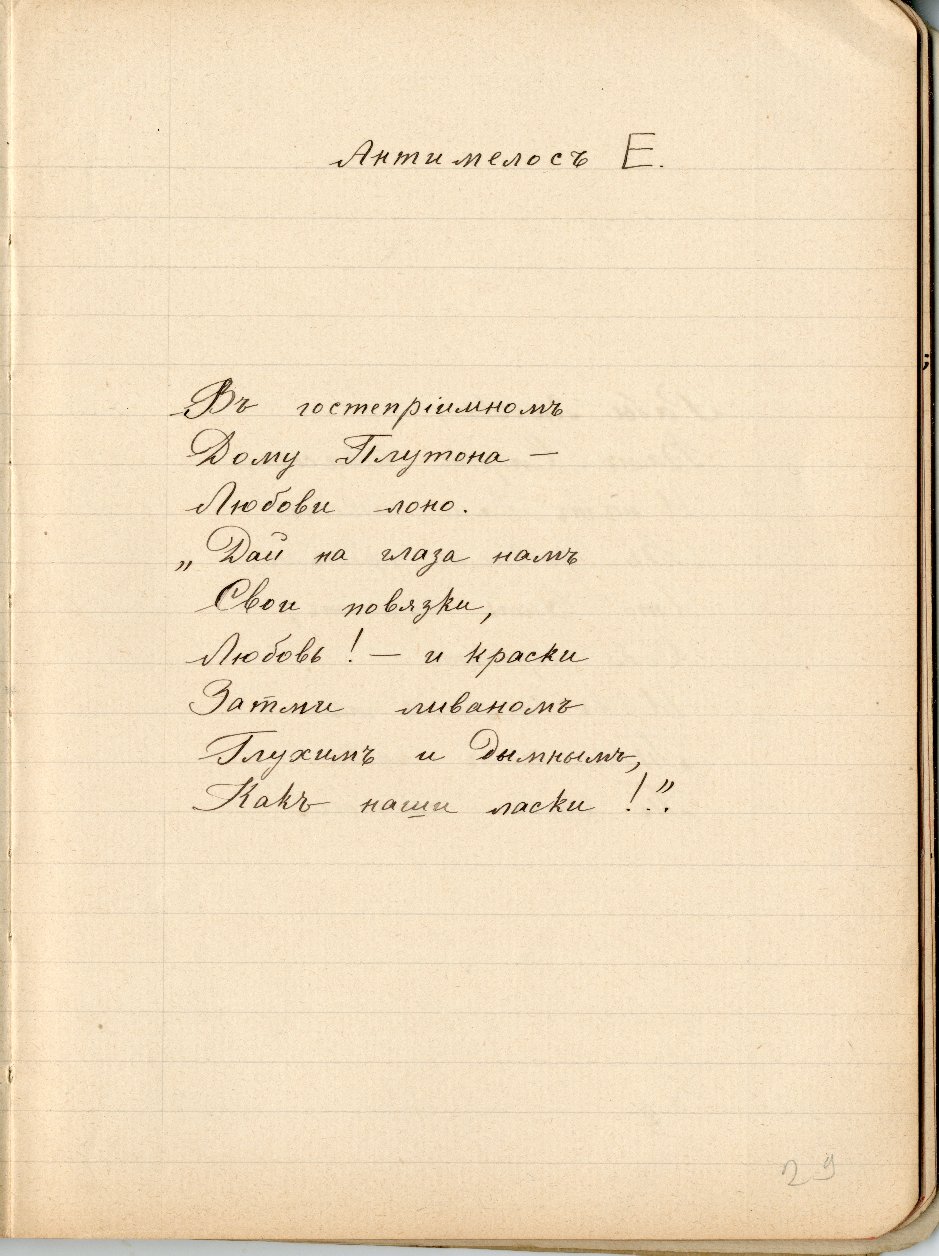 Антимелосъ Е.
Въ гостепріимномъ
Дому Плутона —
Любови лоно.
„Дай на глаза намъ
Свои повязки,
Любовь! — и краски
Затми ливаномъ
Глухимъ и дымнымъ,
Какъ наши ласки!”.
29